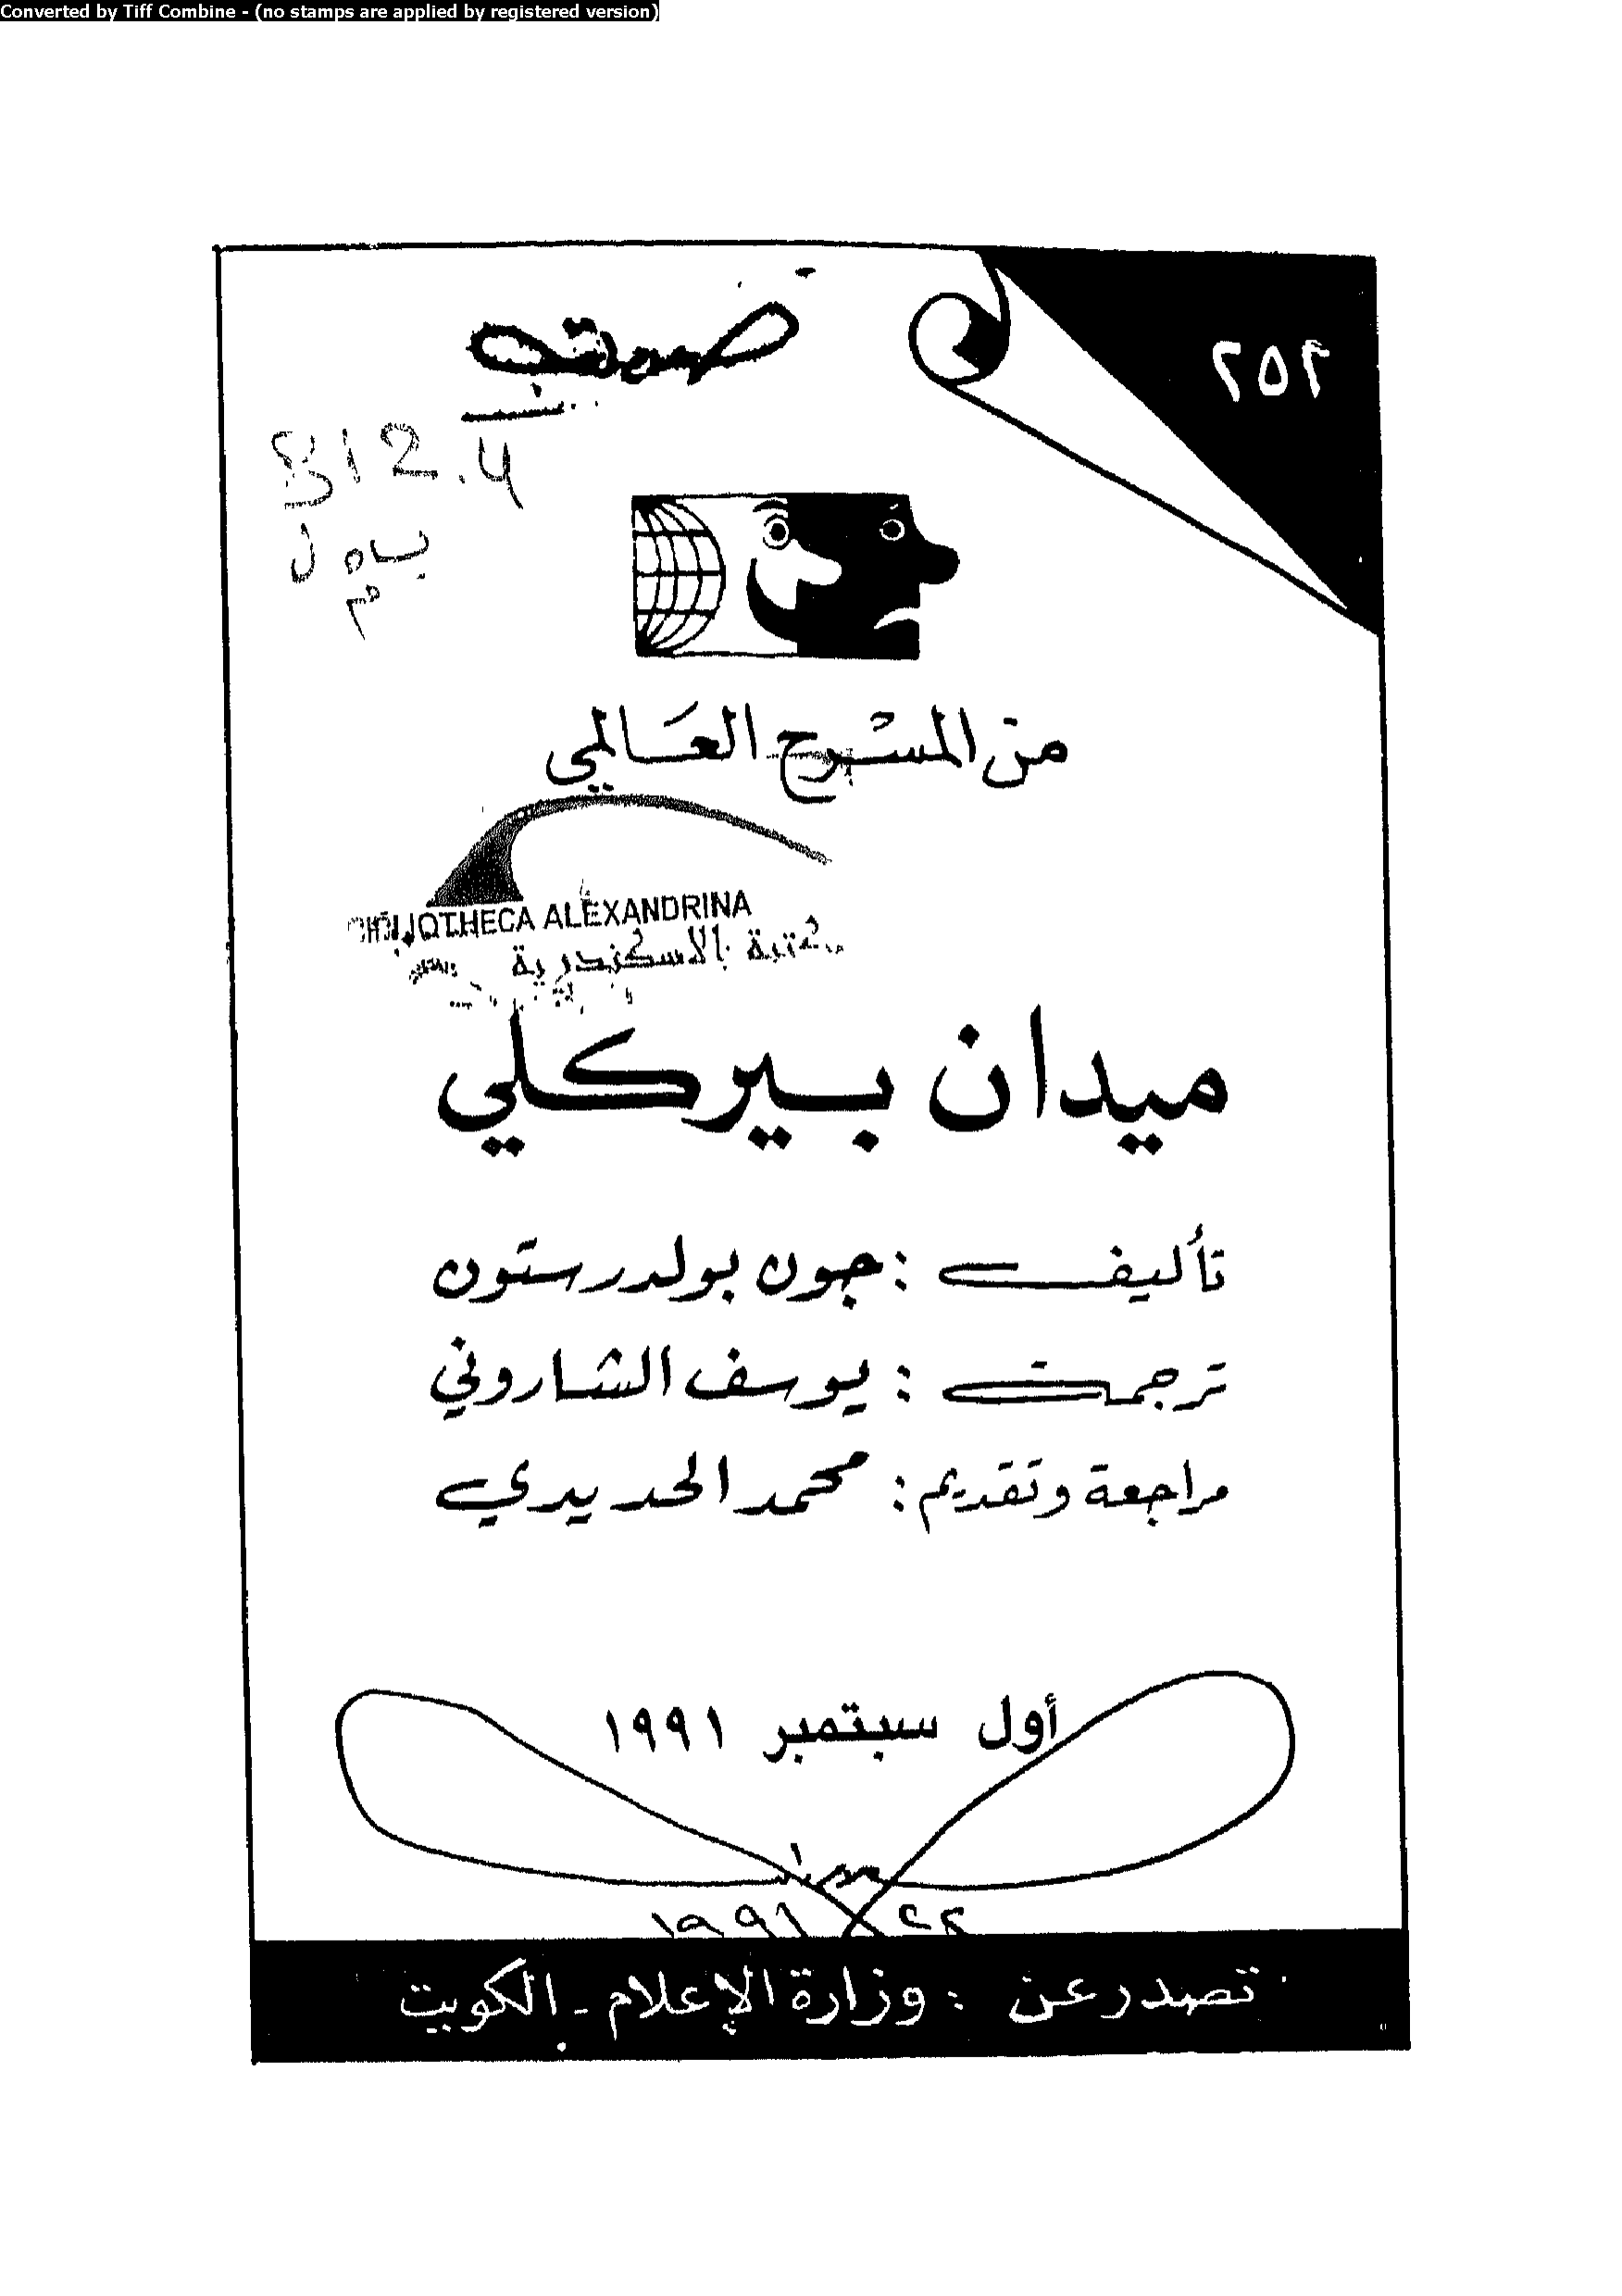 Converted by Tiff Combine - (no stamps are applied by registered version)
٢٥٢
812.4
من المسرح العالمي
BIBLIOTHECA ALEXANDRINA
مكتبة الاسكندرية
ميدان بيركلي
تأليف : جون بولدرستون
ترجمة : يوسف الشاروني
مراجعة وتقديم : محمد الحديدي
أول سبتمبر ١٩٩١
١٩٩١
تصدر عن : وزارة الإعلام - الكويت